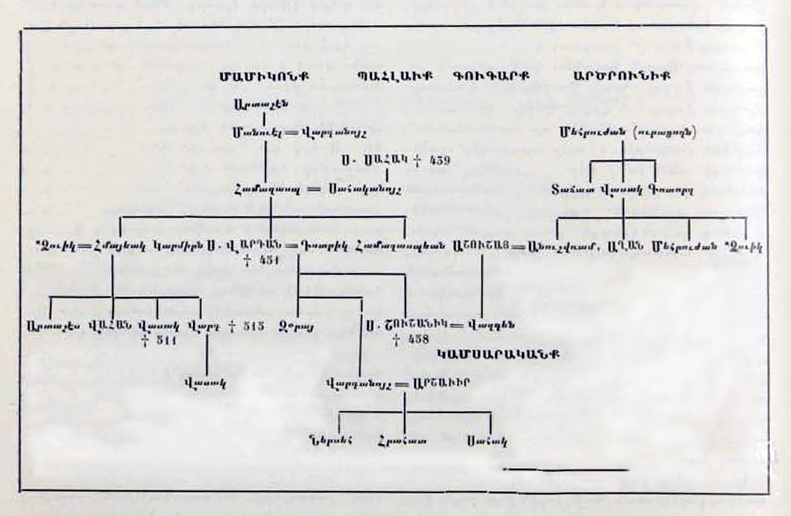 ՄԱՄԻԿՈՆՔ ՊԱՀԼԱՒՔ ԳՈՒԳԱՐՔ ԱՐԾՐՈՒՆԻՔ
Արտաշէն
Մանուէլ = Վարդանոյշ Մեհրուժան (ուրացողն)
Ս. ՍԱՀԱԿ † 439
Համազասպ = Սահականոյշ Տաճատ Վասակ Գոտորզ
*Ձուիկ = Հմայեակ Կարմիրն Ս. ՎԱՐԴԱՆ = Դստրիկ Համազասպեան ԱՇՈՒՇԱՅ = Անուշվռամ, ԱՂԱՆ Մեհրուժան *Ձուիկ
† 451
Արտաշէս ՎԱՀԱՆ Վասակ Վարդ † 515 Զօրայ Ս. ՇՈՒՇԱՆԻԿ = Վազգէն
† 511 † 458
ԿԱՄՍԱՐԱԿԱՆՔ
Վասակ Վարդանոյշ = ԱՐՇԱՒԻՐ
Ներսեհ Հրահատ Սահակ